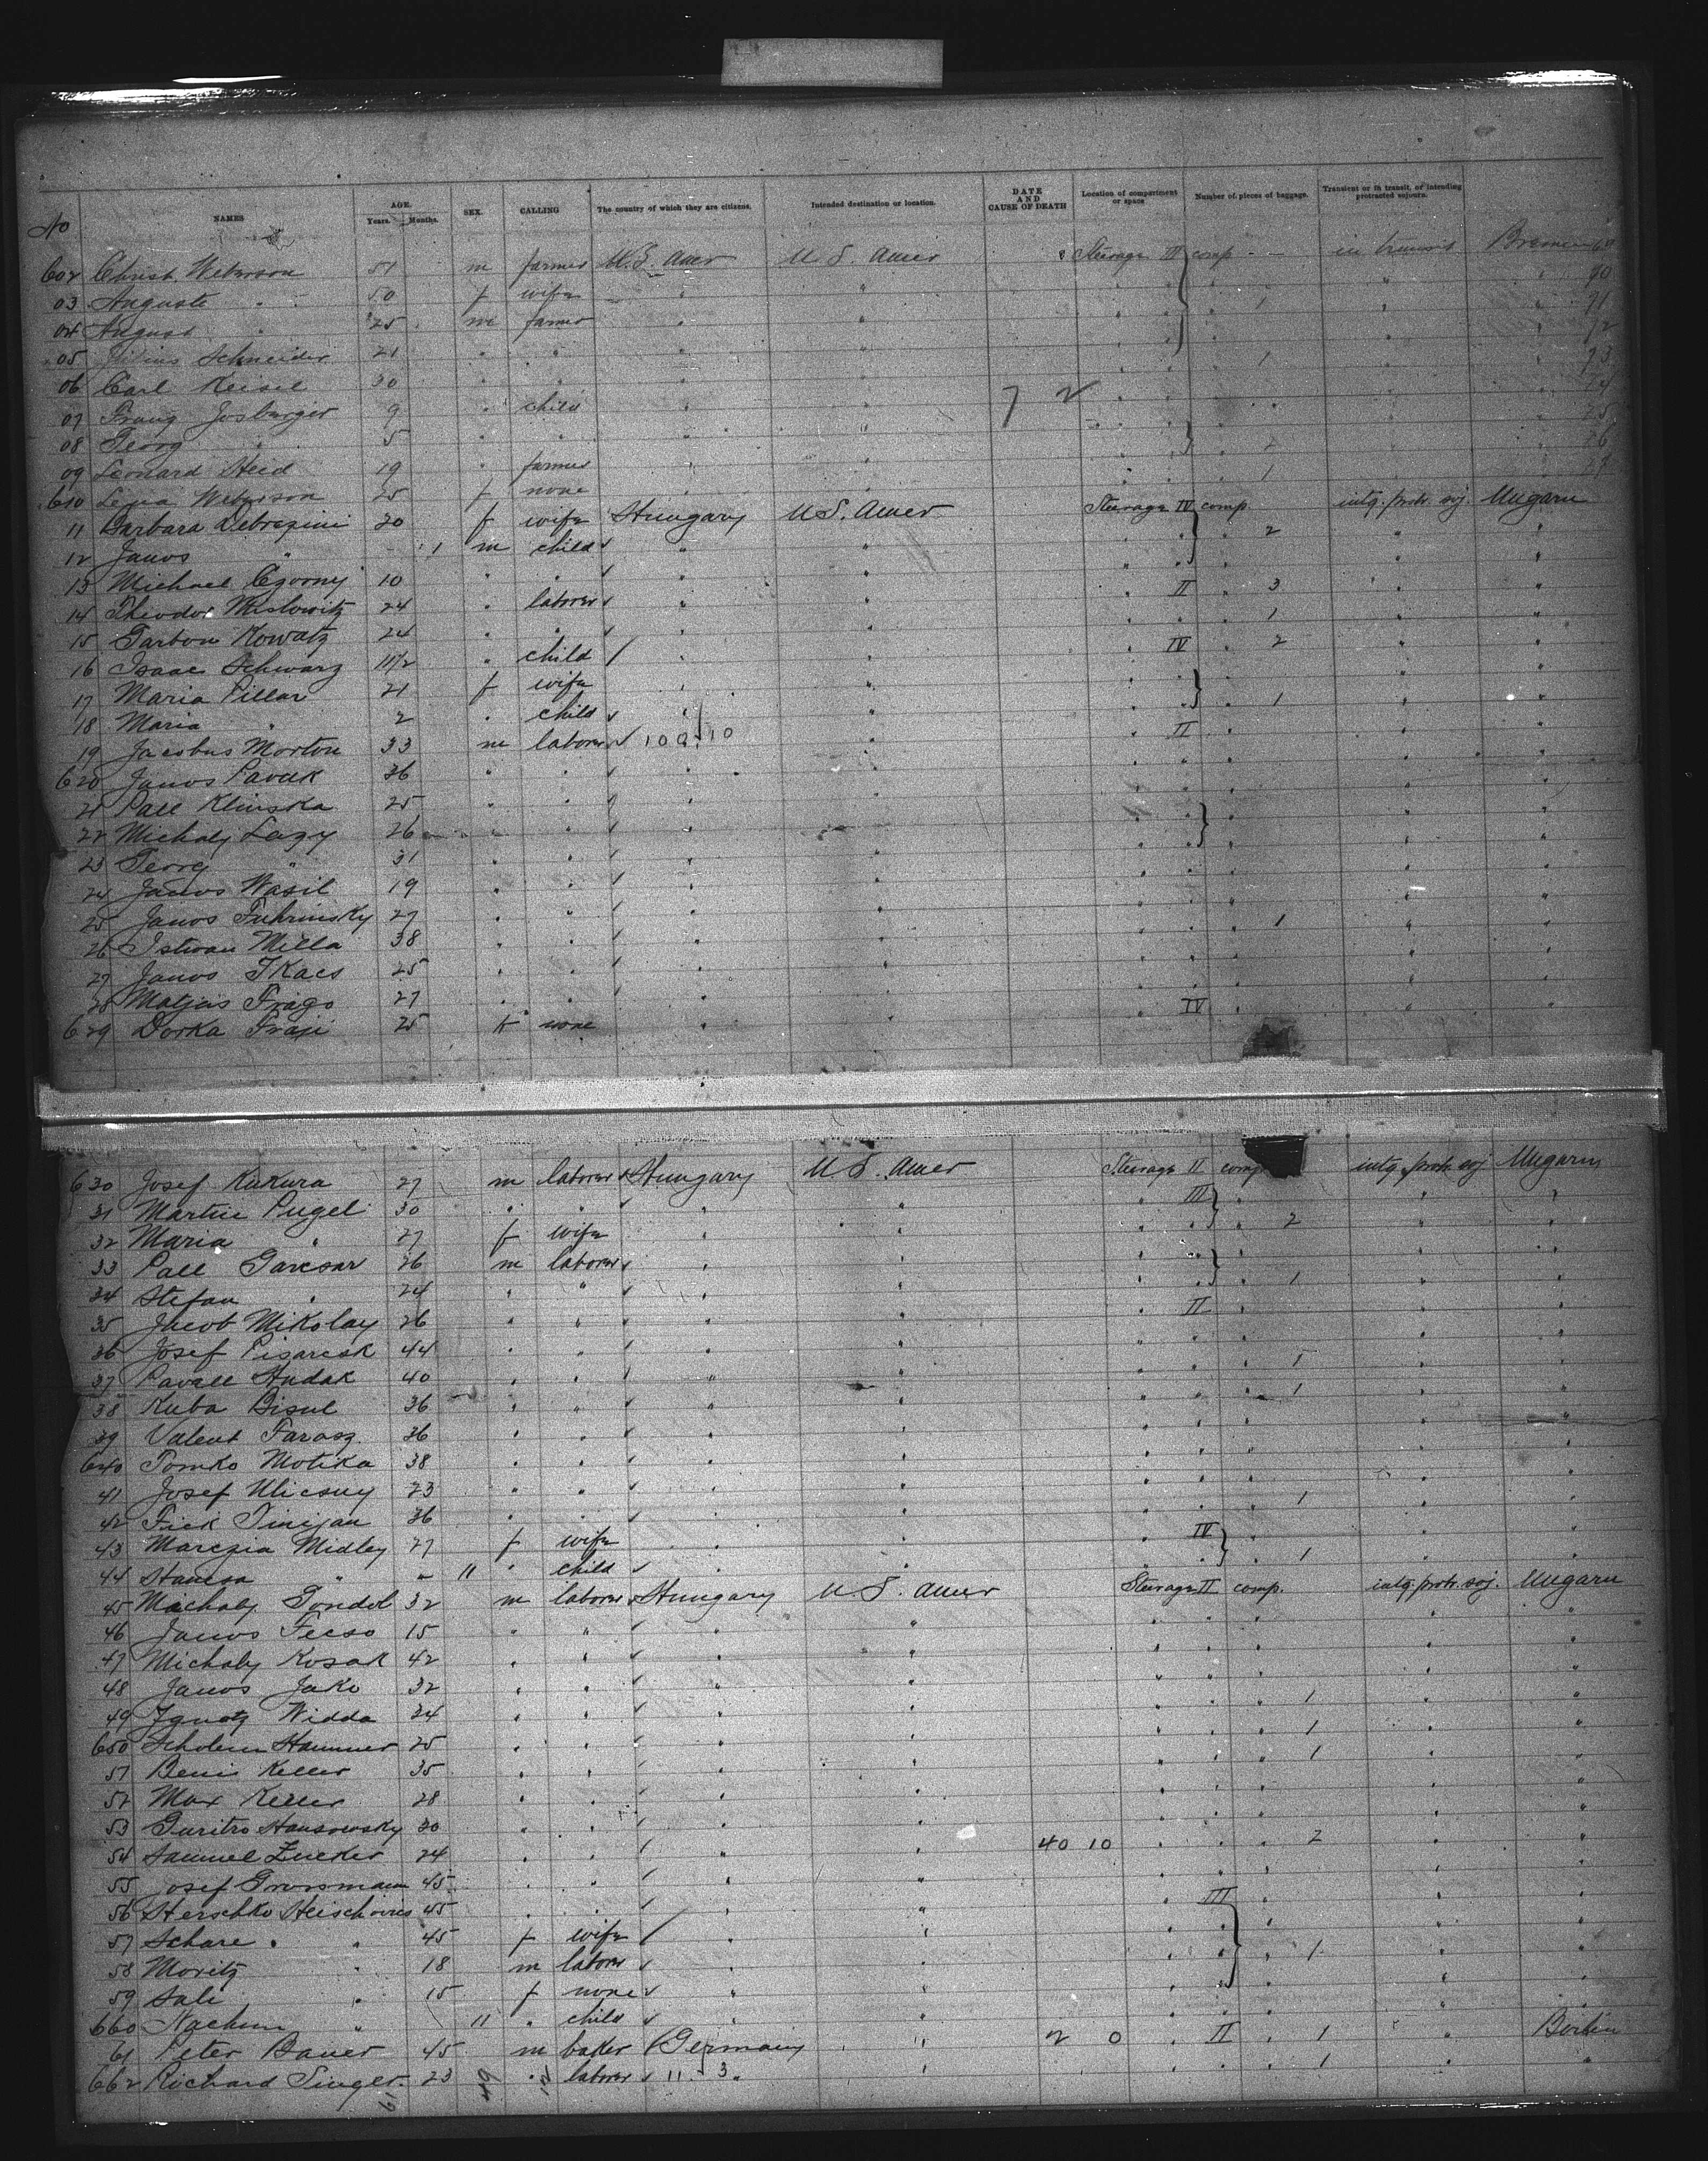 No NAMES AGE. Years. Months. SEX. CALLING The country of which they are citizens. Intended destination or location. DATE AND CAUSE OF DEATH Location of compartment or space Number of pieces of baggage. Transient or in transit, or intending protracted sojourn.
602 Christ. Weberson 51 m farmer U.S. Amer U S. Amer Steerage II comp in transit Bremen
03 Auguste " 50 f wife " "
04 August " 25 m farmer " " 1
05 Julius Schneider 21 " " " "
06 Carl Keisel 30 " " " " 1
07 Franz Josburger 9 " child " "
08 Georg " 5 " " " "
09 Leonard Heid 19 " farmer " " 2
610 Lena Weberson 25 f none " " 1
11 Barbara Debrezini 20 f wife Hungary U S. Amer Steerage IV comp intg. protr. soj. Ungarn
12 Janos " 1 m child " " 2 " "
13 Michael Czorny 10 " " " " " "
14 Theodor Mislowitz 24 " laborer " " II " 3 " "
15 Garbon Kowatz 24 " " " " 1 " "
16 Isaac Schwarz 11 1/2 " child " " IV " 2 " "
17 Maria Pillar 21 f wife " " " "
18 Maria " 2 " child " " 1 " "
19 Jacobus Morton 33 m laborer " II " "
620 Janos Pavuk 36 " " " " " "
21 Pall Klinska 25 " " " " " "
22 Michaly Lazy 26 " " " " " "
23 Georg " 31 " " " " " "
24 Janos Wasil 19 " " " " " "
25 Janos Fuhrinsky 27 " " " " " "
26 Istwan Milla 38 " " " " 1 " "
27 Janos Tkacs 25 " " " " " "
28 Matjas Frago 27 " " " " " "
629 Dorka Fraji 25 f none " " IV " "
630 Josef Kukura 27 m laborer Hungary U. S. Amer Steerage II comp intg. protr. soj Ungarn
31 Martin Pugel 30 " " " " III " "
32 Maria " 27 f wife " " 2 " "
33 Pall Garcsar 26 m laborer " " " "
34 Stefan " 24 " " " " 1 " "
35 Jacob Mikolay 26 " " " " II " "
36 Josef Pisarcsk 44 " " " " " "
37 Pavall Hudak 40 " " " " 1 " "
38 Kuba Bisul 36 " " " " 1 " "
39 Valent Farasz 36 " " " " " "
640 Tomko Motika 38 " " " " " "
41 Josef Ulicsny 23 " " " " " "
42 Fick 36 " " " " 1 " "
43 Marczia Midley 27 f wife " " IV " "
44 " 11 " child " " 1 " "
45 Michaly Gondol 32 m laborer Hungary U. S. Amer Steerage II comp. intg. protr. soj. Ungarn
46 Janos Fecso 15 " " " " " "
47 Michaly Kosak 42 " " " " " "
48 Janos Jako 32 " " " " " "
49 Ignatz Widda 34 " " " " 1 " "
650 Scholem Hammer 25 " " " " 1 " "
51 Beni Keller 35 " " " " 1 " "
52 Max Keller 28 " " " " " "
53 30 " " " " " "
54 Samuel Zucker 24 " " " " 40 10 2 " "
55 Josef Grossmann 45 " " " " " "
56 Herschko 45 " " " " III " "
57 Schare " " 45 f wife " " " "
58 Moritz " 18 m laborer " " 1 " "
59 Sali " 15 f none " " " "
660 Nachum " 11 " child " " " "
61 Peter Bauer 45 m baker Germany " 2 0 II " 1 " Berlin
662 Richard Singer 23 " laborer 11 - 3 " 1 "